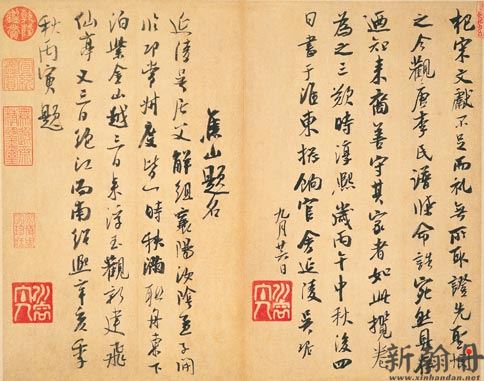 杞宋文獻不足而礼無所取證先聖惜
之今觀唐李氏譜牒命誥宛然具存
迺知来裔善守其家者如此攬卷
為之三歎時淳熙歲丙午中秋後四
日書于淮東揔餉官舍延陵吳琚
九月廿六日
焦山題名
延陵吳居父解組襄陽汝陰孟子開
印常州度皆一時秩滿聯舟東下
泊紫金山越三日来浮玉觀新建飛
仙亭又三日絕江而南紹熙辛亥季
秋丙寅題
www.xinhandan.net